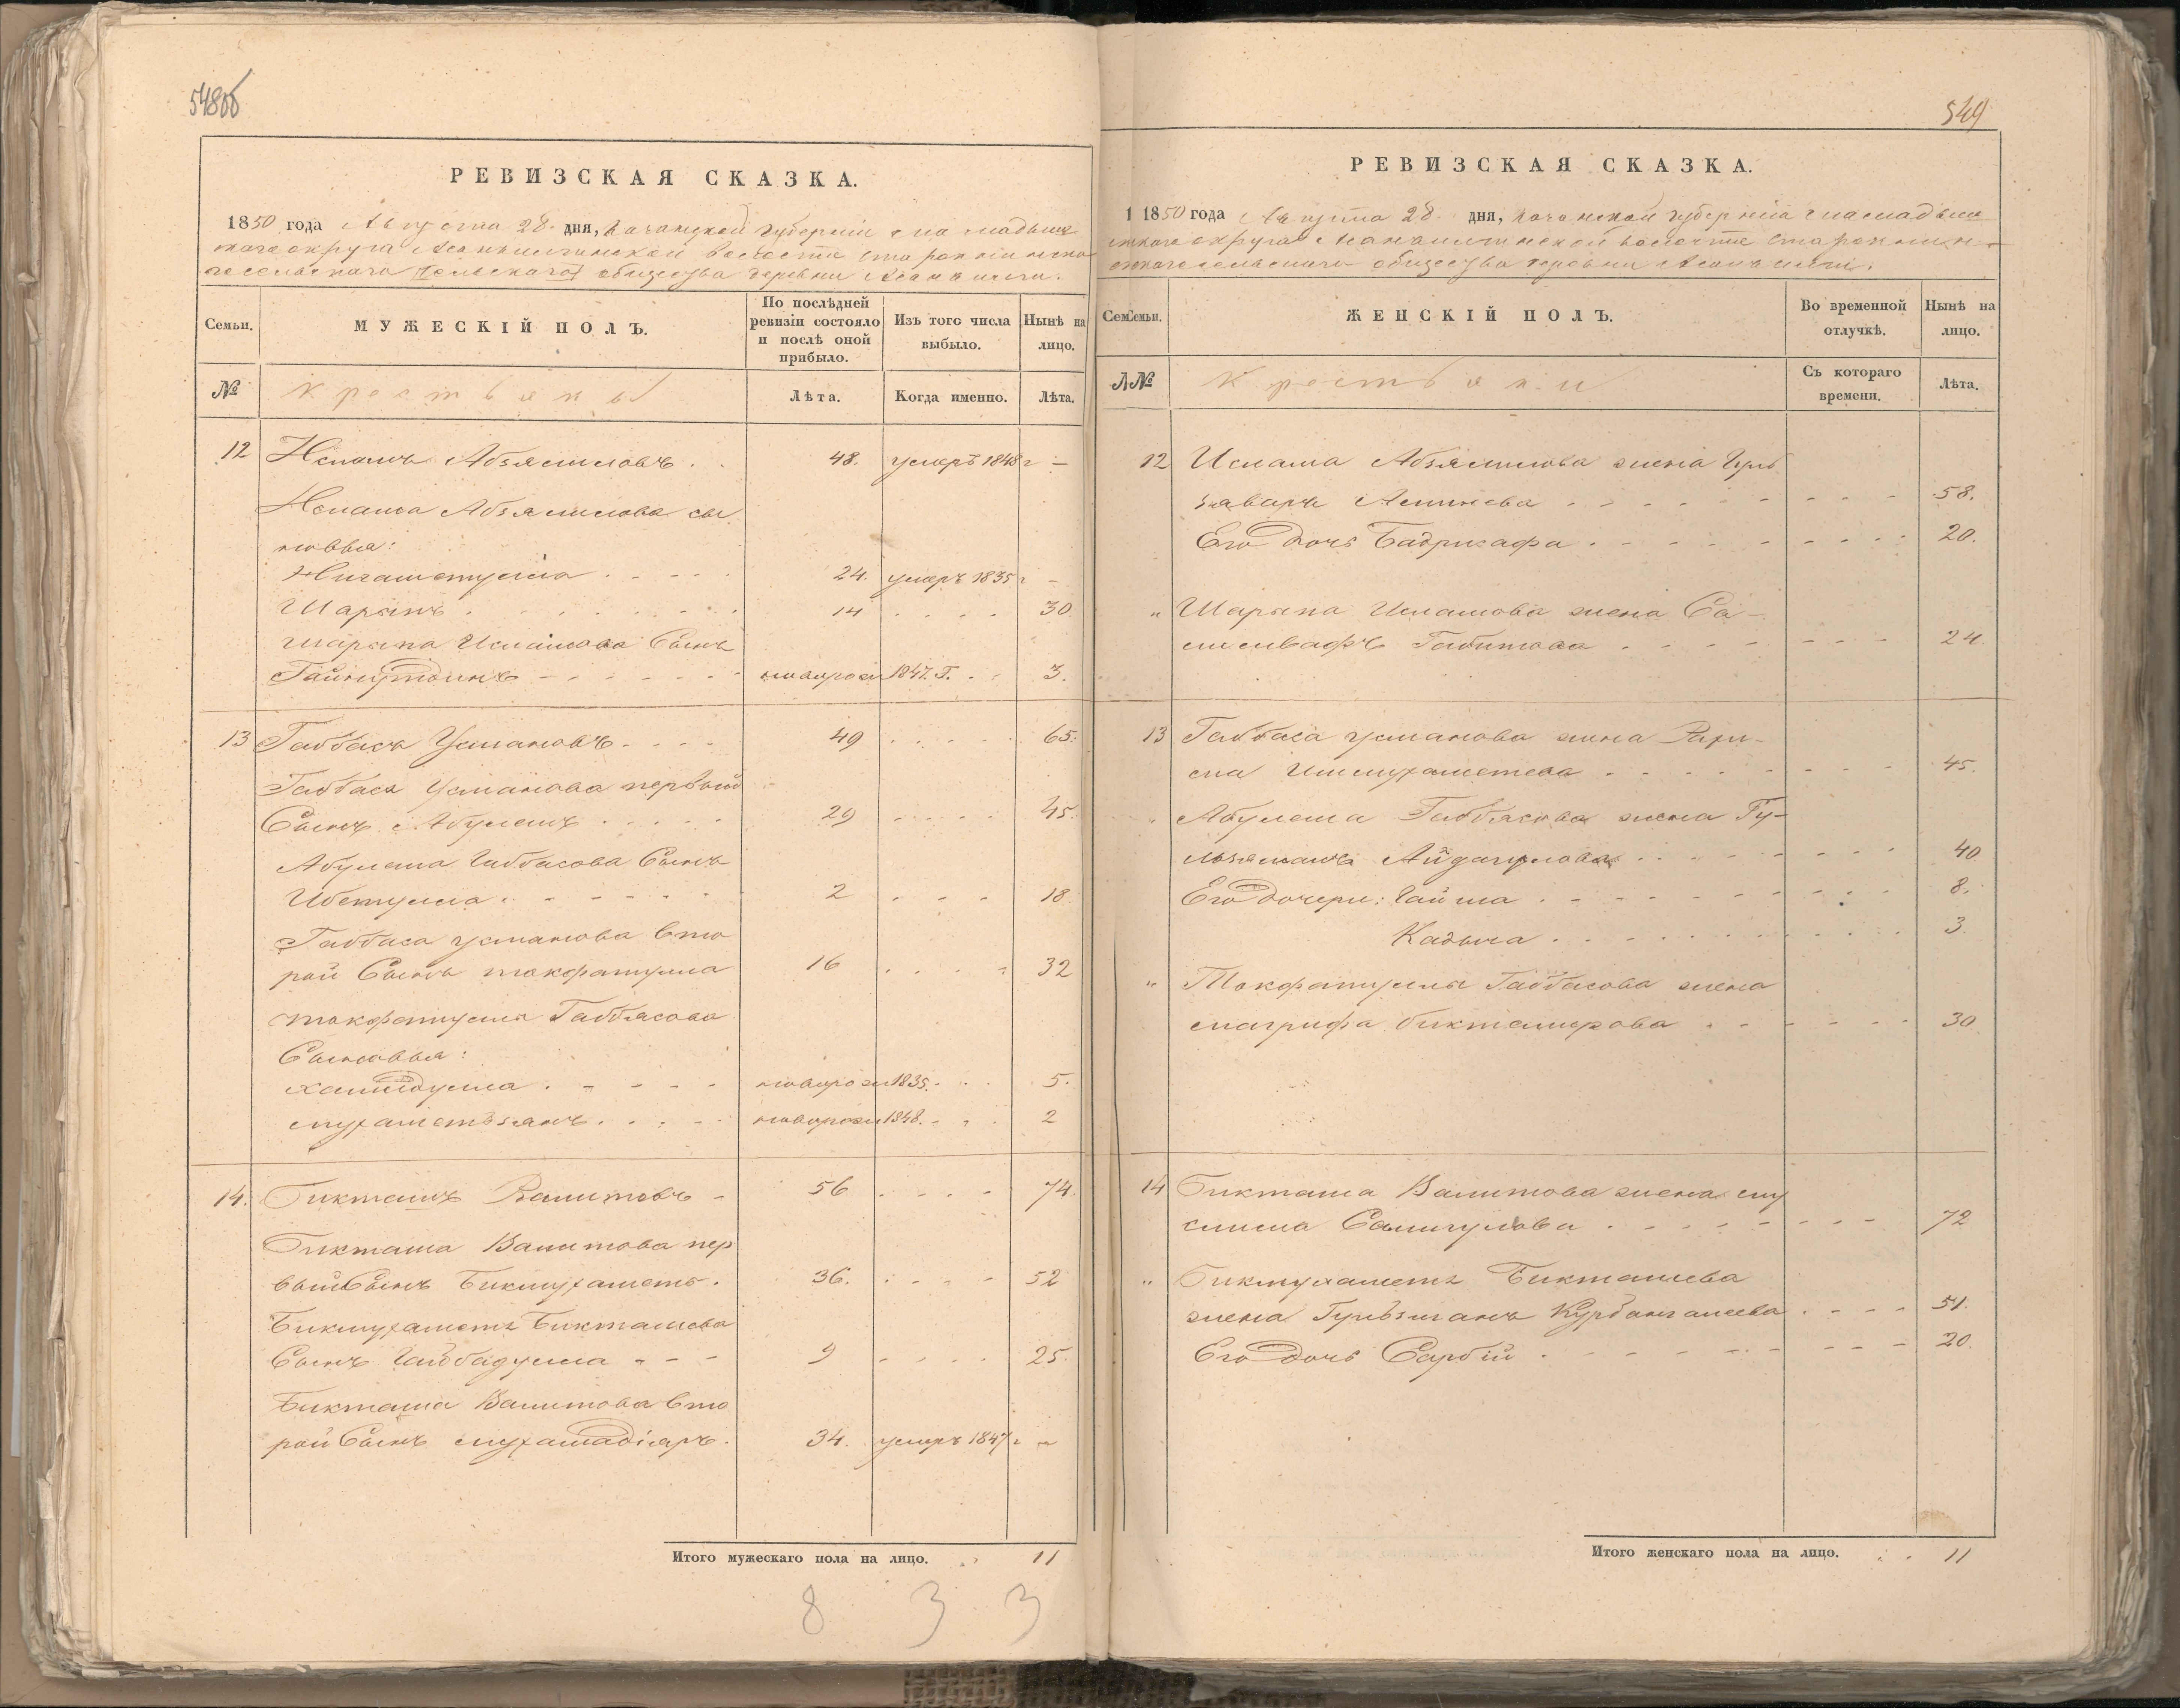 548об
РЕВИЗСКАЯ СКАЗКА.
1850 года Августа 28 дня, Казанской губернии Мамадыш
скаго округа волости
общества деревни
Семьи.
МУЖЕСКІЙ ПОЛЪ.
По послѣдней ревизіи состояло и послѣ оной прибыло.
Изъ того числа выбыло.
Нынѣ на лицо.
№
Крестьяны
Лѣта.
Когда именно.
Лѣта.
12 Исламъ Абзялиловъ . . 48. умеръ 1848 г –
Ислама Абзялилова сы
новья:
Нигаметулла . . . . 24. умеръ 1835 г –
Шарыпъ . . . . 14 . . . . 30.
Шарыпа Исламова Сынъ
Гайнутдинъ – – – – новорож 1847. Г. . . 3.
13 Габбасъ Усмановъ . . . . 49 . . . . 65.
Габбаса Усманова первый
Сынъ Абулешъ . . . . 29 . . . . 45.
Абулеша Габбасова Сынъ
Ибетулла . . . . 2 . . . 18.
Габбаса Усманова вто
рой Сынъ Токфатулла 16 . . . . 32
Токфатулла Габбасова
Сыновья:
Хамидулла . – – – – новорож 1835. . . . 5.
Мухаметзянъ . . . . новорож 1848. . . . 2
14. Бикташъ Валитовъ – 56 . . . . 74.
Бикташа Валитова пер
вый Сынъ Бикмухаметъ . 36. . . . . 52
Бикмухаметъ Бикташева
Сынъ Гайбадулла – – – 9 . . . . 25.
Бикташа Валитова вто
рой Сынъ Мухамадіаръ . 34. умеръ 1847 г –
Итого мужескаго пола на лицо. . . 11
8 3 3
549
РЕВИЗСКАЯ СКАЗКА.
1 1850 года Августа 28 дня, Казанской губерніи Мамадыш
скаго округа волости
общества деревни
Семьи.
ЖЕНСКІЙ ПОЛЪ.
Во временной отлучкѣ.
Нынѣ на лицо.
№
Крестьяни
Съ котораго времени.
Лѣта.
12 Ислама Абзялилова жена Гуль
заваръ . . . . 58.
Его Дочь Бадрисафа . . . . 20.
" Шарыпа Исламова жена Са
Габитова . . . . 24
13 Габбаса Усманова жена Рахи
ма Ишмухаметева . . . . 45.
Абулеша Габбасова жена Гу-
Айдагулова . . . . 40
Его Дочери: Гайша . . . . 8.
Кадыча . . . . 3.
" Токфатуллы Габбасова жена
Магрифа Биктемирова . . . . 30
14 Бикташа Валитова жена Му
слима Салигулова . . . . 72
" Бикмухаметъ Бикташева
жена Гульзиганъ Курбангалеева . . . . 51.
Его Дочь Сарбій . . . . 20.
Итого женскаго пола на лицо. . . 11